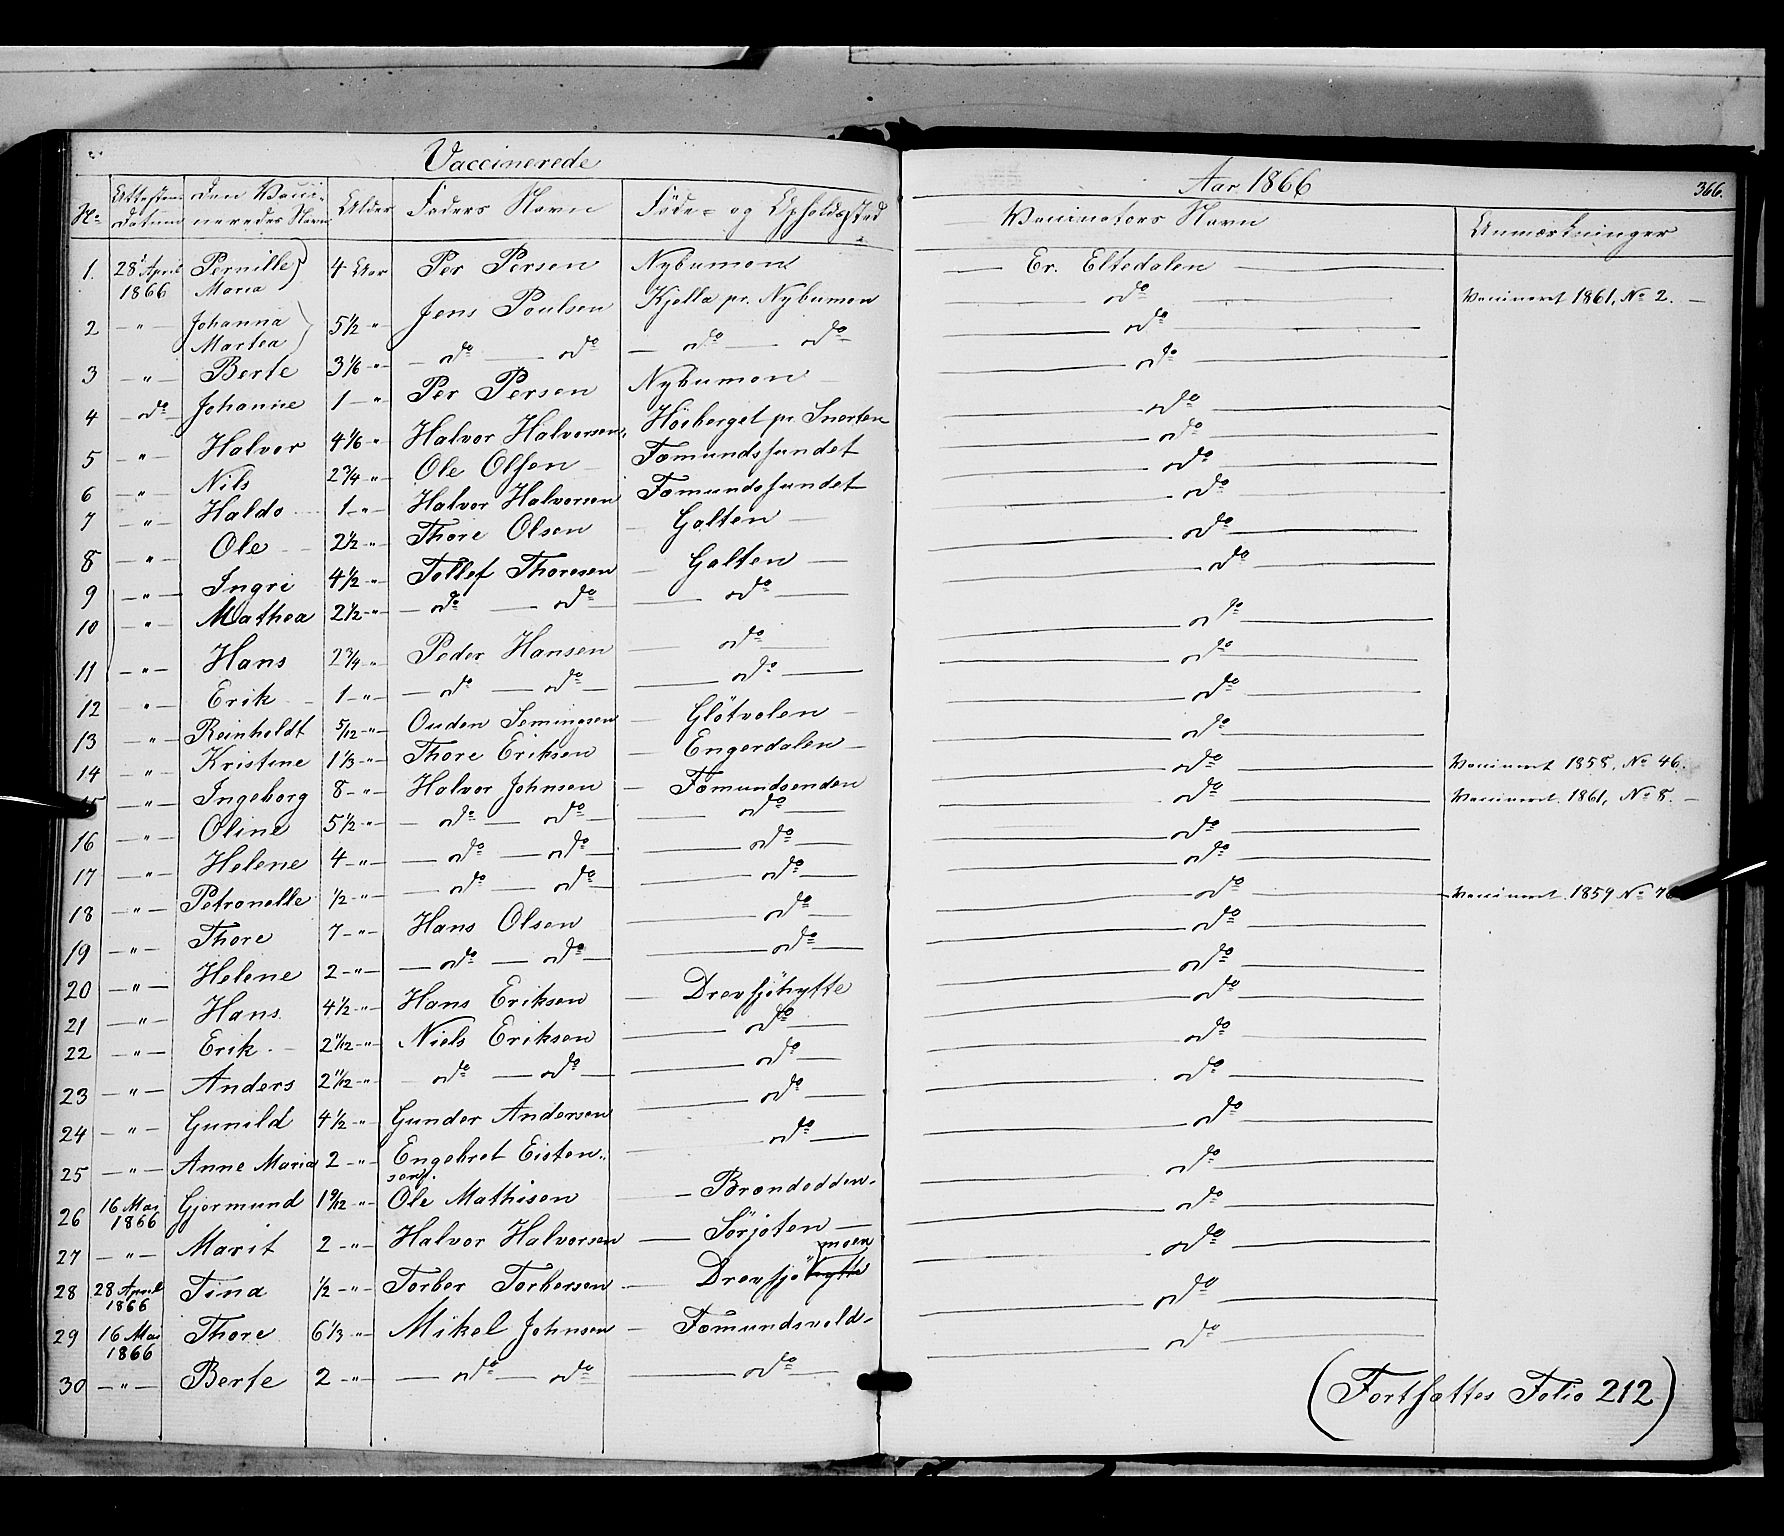 Vaccinerede
Aar 1866
366.
No | Attestens Datum | Den Vacci-neredes Navn | Alder | Faders Navn | Føde- og Opholdssted | Vaccinators Navn | Anmærkninger
1. | 28' April 1866 | Pernille Maria | 4 Aar | Per Persen | Nybumon | Er. Eltedalen
2 | " | Johanna Martea | 5 1/2 " | Jens Poulsen | Kjølla pr. Nybumon | do | Vaccineret 1861, No 2.
3 | " | Berte | 3 1/6 " | do do | do do | do
4 | do | Johanne | 1 " | Per Persen | Nybumon | do
5 | " | Halvor | 4 1/6 " | Halvor Halvorsen | Höeberget pr Snerten | do
6 | " | Nils | 2 3/4 " | Ole Olsen | Fæmundssundet | do
7 | " | Haldo | 1 " | Halvor Halvorsen | Fæmundssundet | do
8 | " | Ole | 2 1/2 " | Thore Olsen | Galten | do
9 | " | Ingri | 4 1/2 " | Tollef Thoresen | Galten | do
10 | " | Mathea | 2 1/2 " | do do | do | do
11 | " | Hans | 2 3/4 " | Peder Hansen | do | do
12 | " | Erik | 1 " | do do | do | do
13 | " | Reinholdt | 5/12 " | Ouden Semingsen | Glötvolen | do
14 | " | Kristine | 1 1/3 " | Thore Eriksen | Engerdalen | do
15 | " | Ingeborg | 8 " | Halvor Johnsen | Fæmundsenden | do | Vaccineret 1858, No 46.
16 | " | Oline | 5 1/2 " | do do | do | do | Vaccineret 1861, No 8.
17 | " | Helene | 4 " | do do | do | do
18 | " | Petronelle | 1/2 " | do do | do | do
19 | " | Thore | 7 " | Hans Olsen | do | do | Vaccineret 1859 No
20 | " | Helene | 2 " | do do | do | do
21 | " | Hans | 4 1/2 " | Hans Eriksen | Drevsjöhytte | do
22 | " | Erik | 2 11/12 " | Niels Eriksen | do | do
23 | " | Anders | 2 11/12 " | do do | do | do
24 | " | Gunild | 4 1/2 " | Gunder Andersen | do | do
25 | " | Anne Maria | 2 " | Engebret Eisten-sen | do | do
26 | 16 Mai 1866 | Gjermund | 1 9/12 " | Ole Mathisen | Brændodden | do
27 | " | Marit | 2 " | Halvor Halvorsen | Sorjoten | do
28 | 28 April 1866 | Tina | 1/2 " | Torber Torbersen | Drevsjöhytte moen | do
29 | 16 Mai 1866 | Thore | 6 1/3 " | Mikel Johnsen | Fæmundsvold | do
30 | " | Berte | 2 " | do do | do | do
(Fortsattes Folio 212)